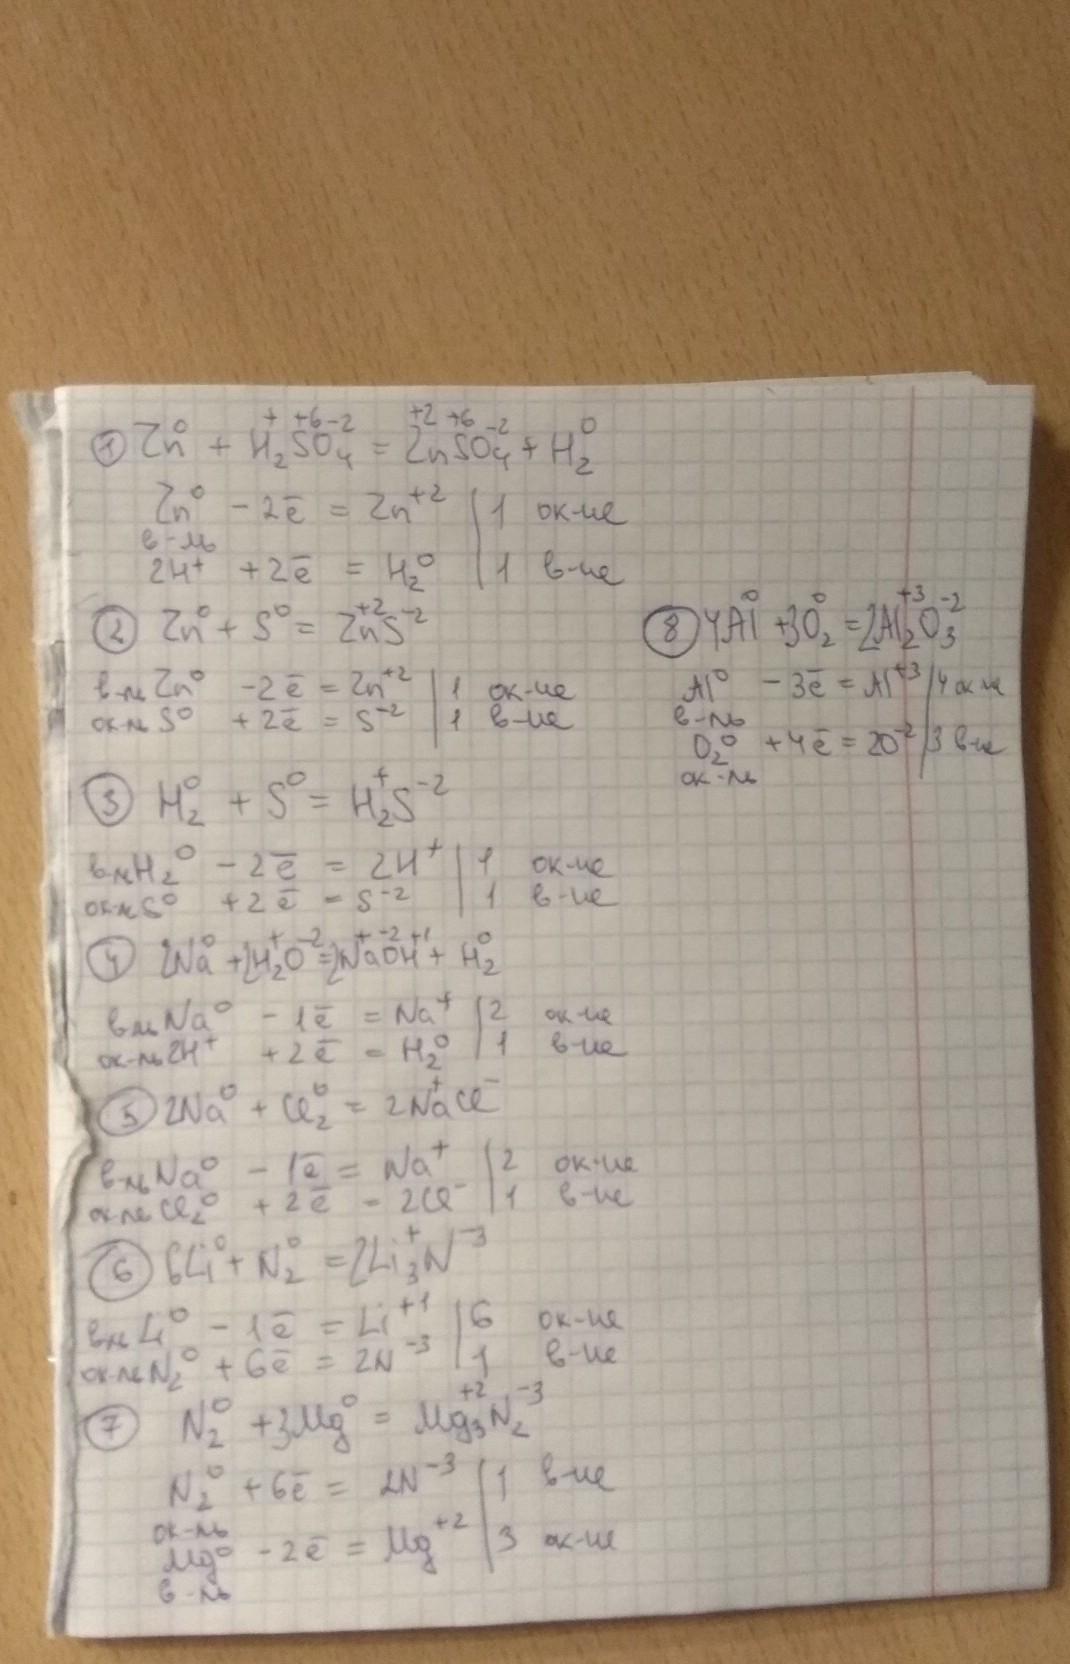 ① Zn⁰ + H₂⁺S⁺⁶O₄⁻² = Zn⁺²S⁺⁶O₄⁻² + H₂⁰
Zn⁰ - 2ē = Zn⁺² | 1 ок-ие
в-ль
2H⁺ + 2ē = H₂⁰ | 1 в-ие
② Zn⁰ + S⁰ = Zn⁺²S⁻²
в-ль Zn⁰ - 2ē = Zn⁺² | 1 ок-ие
ок-ль S⁰ + 2ē = S⁻² | 1 в-ие
③ H₂⁰ + S⁰ = H₂⁺S⁻²
в-ль H₂⁰ - 2ē = 2H⁺ | 1 ок-ие
ок-ль S⁰ + 2ē = S⁻² | 1 в-ие
④ 2Na⁰ + 2H₂⁺O⁻² = 2Na⁺O⁻²H⁺¹ + H₂⁰
в-ль Na⁰ - 1ē = Na⁺ | 2 ок-ие
ок-ль 2H⁺ + 2ē = H₂⁰ | 1 в-ие
⑤ 2Na⁰ + Cl₂⁰ = 2Na⁺Cl⁻
в-ль Na⁰ - 1ē = Na⁺ | 2 ок-ие
ок-ль Cl₂⁰ + 2ē = 2Cl⁻ | 1 в-ие
⑥ 6Li⁰ + N₂⁰ = 2Li₃⁺N⁻³
в-ль Li⁰ - 1ē = Li⁺¹ | 6 ок-ие
ок-ль N₂⁰ + 6ē = 2N⁻³ | 1 в-ие
⑦ N₂⁰ + 3Mg⁰ = Mg₃⁺²N₂⁻³
N₂⁰ + 6ē = 2N⁻³ | 1 в-ие
ок-ль
Mg⁰ - 2ē = Mg⁺² | 3 ок-ие
в-ль
⑧ 4Al⁰ + 3O₂⁰ = 2Al₂⁺³O₃⁻²
Al⁰ - 3ē = Al⁺³ | 4 ок-ие
в-ль
O₂⁰ + 4ē = 2O⁻² | 3 в-ие
ок-ль